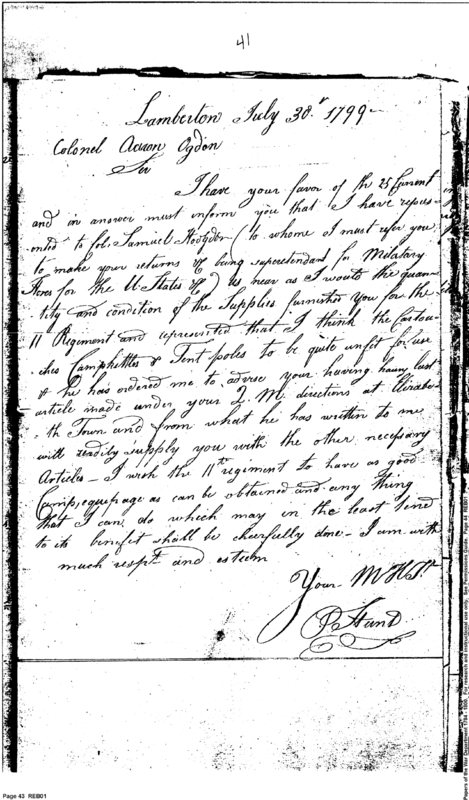 41
Lamberton July 30th 1799
Colonel Aaron Ogdon
Sir
I have your favor of the 25 Current
and in answer must inform you that I have repres-
ented to Col. Samuel Hodgdon (to whome I must refer you
to make your returns he being superetendant for Milatary
Stores for the U States &c) as near as I would the quan-
tity and condition of the Supplies furnished You for the
11 Regiment and represented that I think the Cartou-
ches Campkettles & Tent poles to be quite unfit for use
& he has ordered me to advise your having last
article made under your Q. M. directions at Elizabe-
th Town and from what he has written to me
will readily supply you with the other necessary
Articles - I wish the 11th regiment to have as good
Camp, equipage as can be obtained and any thing
that I can do which may in the least tend
to its benefit shall be cheerfully done - I am with
much respt. and esteem
Your M H St.
P Hunt
Page 43 REB01